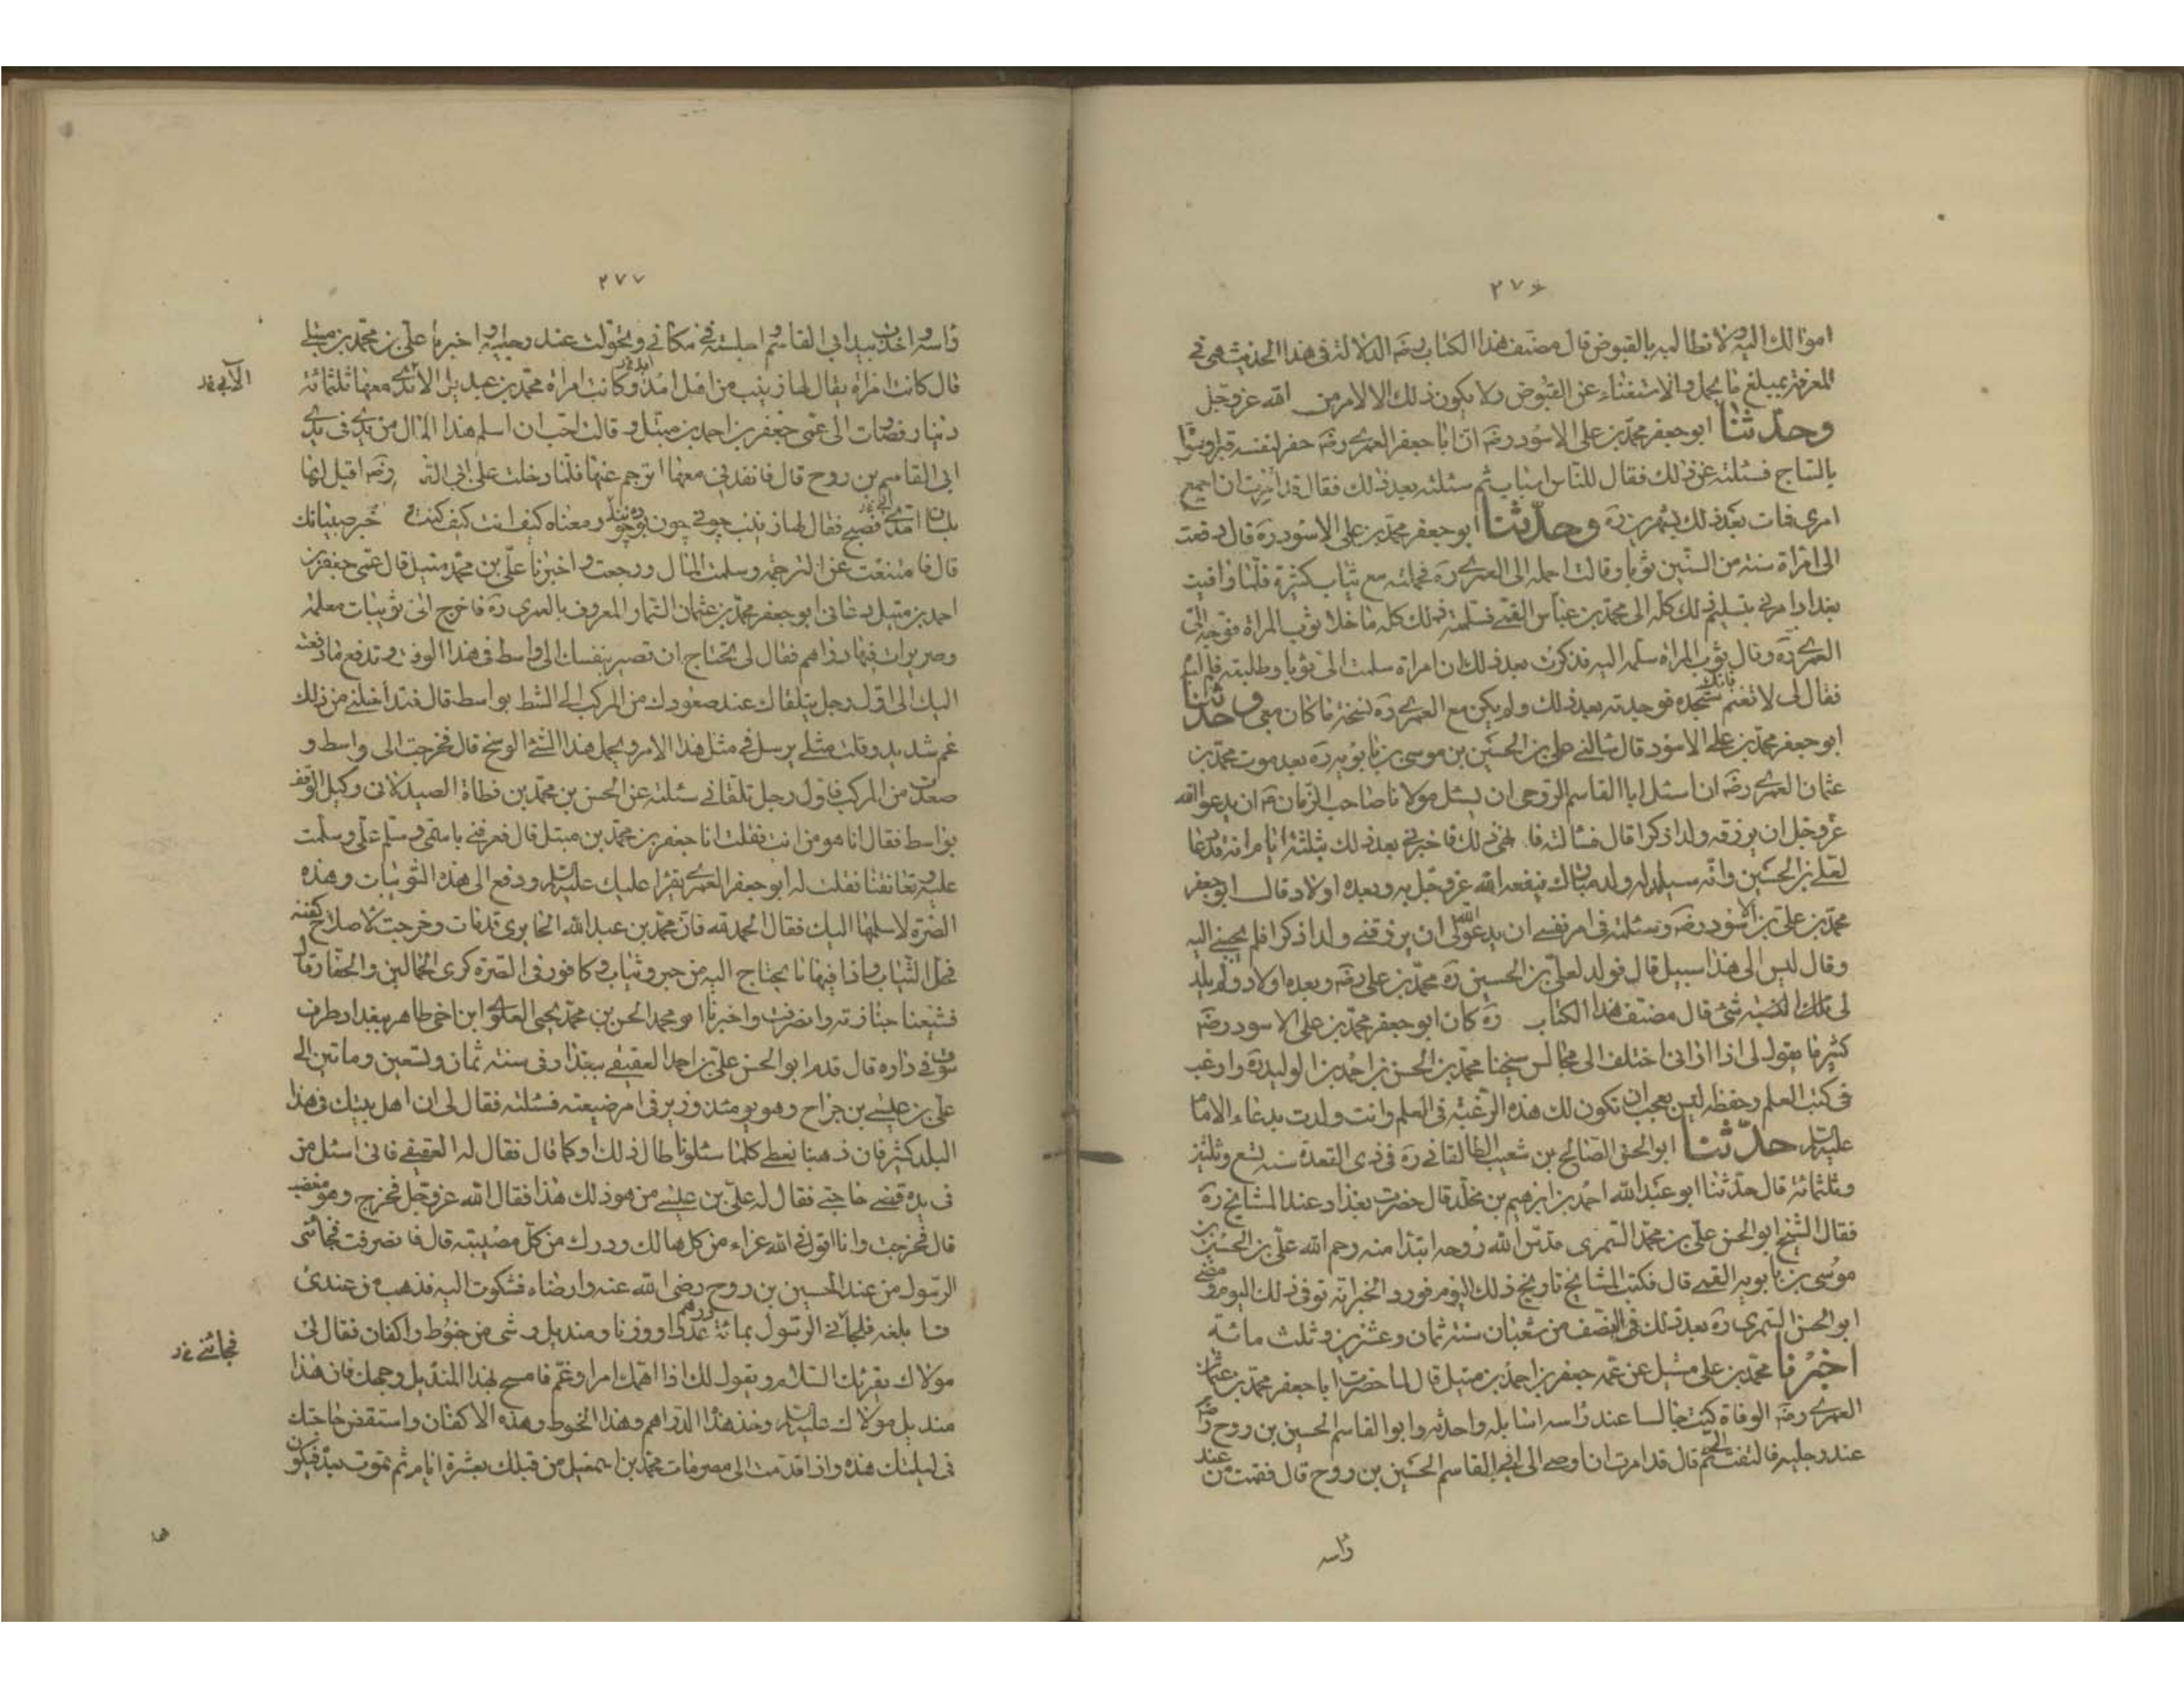 ٢٧٦
اموالك اليه ولا تطالبه بالقبوض قال مصنف هذا الكتاب رضه الدلالة فى هذا الحديث هى فى
المعرفة بمبلغ ما يحمل والاستغناء عن القبوض ولا يكون ذلك الا لامر من الله عز وجل
وحدثنا ابو جعفر محمد بن على الاسود رضه ان ابا جعفر العمرى رضه حفر لنفسه قبرا وسواه
بالساج فسئلته عن ذلك فقال للناس اسباب ثم سئلته بعد ذلك فقال قد امرت ان اجمع
امرى فمات بعد ذلك بشهرين ره وحدثنا ابو جعفر محمد بن على الاسود ره قال دفعت
الى امراة سنة من السنين ثوبا وقالت احمله الى العمرى ره فحملته مع ثياب كثيرة فلما وافيت
بغداد امرنى بتسليم ذلك كله الى محمد بن عباس القمى فسلمته ذلك كله ما خلا ثوب المراة فوجه الى
العمرى ره وقال ثوب المراة سلمه اليه فذكرت بعد ذلك ان امراة سلمت الى ثوبا وطلبته فلم اجده
فقال لى لا تغتم فانك ستجده فوجدته بعد ذلك ولم يكن مع العمرى ره نسخة ما كان معى وحدثنا
ابو جعفر محمد بن على الاسود قال سالنى على بن الحسين بن موسى بن بابويه ره بعد موت محمد بن
عثمان العمرى رضه ان اسئل ابا القاسم الروحى ان يسئل مولانا صاحب الزمان ان يدعو الله
عز وجل ان يرزقه ولدا ذكرا قال فسالته فانهى ذلك فاخبرنى بعد ذلك بثلثة ايام انه قد دعا
لعلى بن الحسين وانه سيولد له ولد مبارك ينفعه الله عز وجل به وبعده اولاد قال ابو جعفر
محمد بن على بن الاسود رضه وسئلته فى امر نفسى ان يدعو الله لى ان يرزقنى ولدا ذكرا فلم يجبنى اليه
وقال ليس الى هذا سبيل قال فولد لعلى بن الحسين ره محمد بن على رضه وبعده اولاد ولم يولد
لى تلك السنة شئ قال مصنف هذا الكتاب ره كان ابو جعفر محمد بن على الاسود رضه
كثيرا ما يقول لى اذا رانى اختلف الى مجالس شيخنا محمد بن الحسن بن احمد بن الوليد ره وارغب
فى كتب العلم وحفظه ليس بعجب ان تكون لك هذه الرغبة فى العلم وانت ولدت بدعاء الامام
عليه السلام حدثنا ابو الحسن الصالح بن شعيب الطالقانى ره فى ذى القعدة سنة تسع وثلثين
وثلثمائة قال حدثنا ابو عبد الله احمد بن ابرهيم بن مخلد قال حضرت بغداد عند المشايخ ره
فقال الشيخ ابو الحسن على بن محمد السمرى قدس الله روحه ابتدا منه رحم الله على بن الحسين بن
موسى بن بابويه القمى قال فكتب المشايخ تاريخ ذلك اليوم فورد الخبر انه توفى ذلك اليوم ومضى
ابو الحسن السمرى ره بعد ذلك فى النصف من شعبان سنة ثمان وعشرين وثلث مائة
اخبرنا محمد بن على متيل عن عمه جعفر بن احمد بن متيل قال لما حضرت ابا جعفر محمد بن عثمان
العمرى رضه الوفاة كنت جالسا عند راسه اسائله واحدثه وابو القاسم الحسين بن روح رضه
عند رجليه فالتفت الى ثم قال قد امرت ان اوصى الى ابى القاسم الحسين بن روح قال فقمت من عند
راسه
٢٧٧
راسه واخذت بيد ابى القاسم واجلسته فى مكانى وتحولت عند رجليه واخبرنا على بن محمد بن متيل
قال كانت امراة يقال لها زينب من اهل آبه وكانت امراة محمد بن عبديل الابدى معها ثلثمائة
الآبى خد
دينار فصارت الى عمى جعفر بن احمد بن متيل وقالت احب ان اسلم هذا المال من يدى فى يدى
ابى القاسم بن روح قال فانفذنى معها اترجم عنها فلما دخلت على ابى القاسم رضه اقبل اليها
بلسان آبى فصيح فقال لها زينب چونى چون بودى چونه ومعناه كيف انت كيف كنت خبر صبيانك
قال فامتنعت عن الترجمة وسلمت المال ورجعت واخبرنا على بن محمد متيل قال عمى جعفر بن
احمد بن متيل دعانى ابو جعفر محمد بن عثمان السمان المعروف بالعمرى ره فاخرج الى ثويبات معلمة
وصريرات فيها دراهم فقال لى تحتاج ان تصير بنفسك الى واسط فى هذا الوقت وتدفع ما دفعته
اليك الى اول رجل يتلقاك عند صعودك من المركب الى الشط بواسط قال فتداخلنى من ذلك
غم شديد وقلت مثلى يرسل فى مثل هذا الامر ويحمل هذا الشئ الوسخ قال فخرجت الى واسط و
صعدت من المركب فاول رجل تلقانى سئلته عن الحسن بن محمد بن قطاة الصيدلانى وكيل الوقف
بواسط فقال انا هو من انت فقلت انا جعفر بن محمد بن متيل قال فعرفنى باسمى وسلم على وسلمت
عليه وتعانقنا فقلت له ابو جعفر العمرى يقرا عليك السلام ودفع الى هذه الثويبات وهذه
الصرة لاسلمها اليك فقال الحمد لله فان محمد بن عبد الله الحايرى قد مات وخرجت لاصلاح كفنه
فحل الثياب فاذا فيها ما يحتاج اليه من حبر وثياب وكافور فى الصرة كرى الحمالين والحفار قال
فشيعنا جنازته وانصرفت واخبرنا ابو محمد الحسن بن محمد يحيى العلوى ابن اخى طاهر ببغداد طرف
سوق فى داره قال قدم ابو الحسن على بن احمد العقيقى ببغداد فى سنة ثمان وتسعين وماتين الى
على بن عيسى بن جراح وهو يومئذ وزير فى امر ضيعته فسئلته فقال لى ان اهل بيتك فى هذا
البلد كثير فان ذهبنا نعطى كلما سئلونا طال ذلك او كما قال فقال له العقيقى فانى اسئل من
فى يده قضى حاجتى فقال له على بن عيسى من هو ذلك هذا فقال الله عز وجل فخرج وهو مغضب
قال فخرجت وانا اقول فى الله عزاء من كل هالك ودرك من كل مصيبة قال فانصرفت فجائنى
الرسول من عند الحسين بن روح رضى الله عنه وارضاه فشكوت اليه فذهب من عندى
فا بلغه فجائنى الرسول بمائة درهم عددا ووزنا ومنديل وشى من حنوط واكفان فقال لى
فجائنى خد
مولاك يقرئك السلام ويقول لك اذا اهمك امر او غم فامسح بهذا المنديل وجهك فان هذا
منديل مولاك عليه السلام وخذ هذا الدراهم وهذا الحنوط وهذه الاكفان واستقضى حاجتك
فى ليلتك هذه واذا قدمت الى مصر مات محمد بن اسمعيل من قبلك بعشرة ايام ثم تموت بعده فيكون